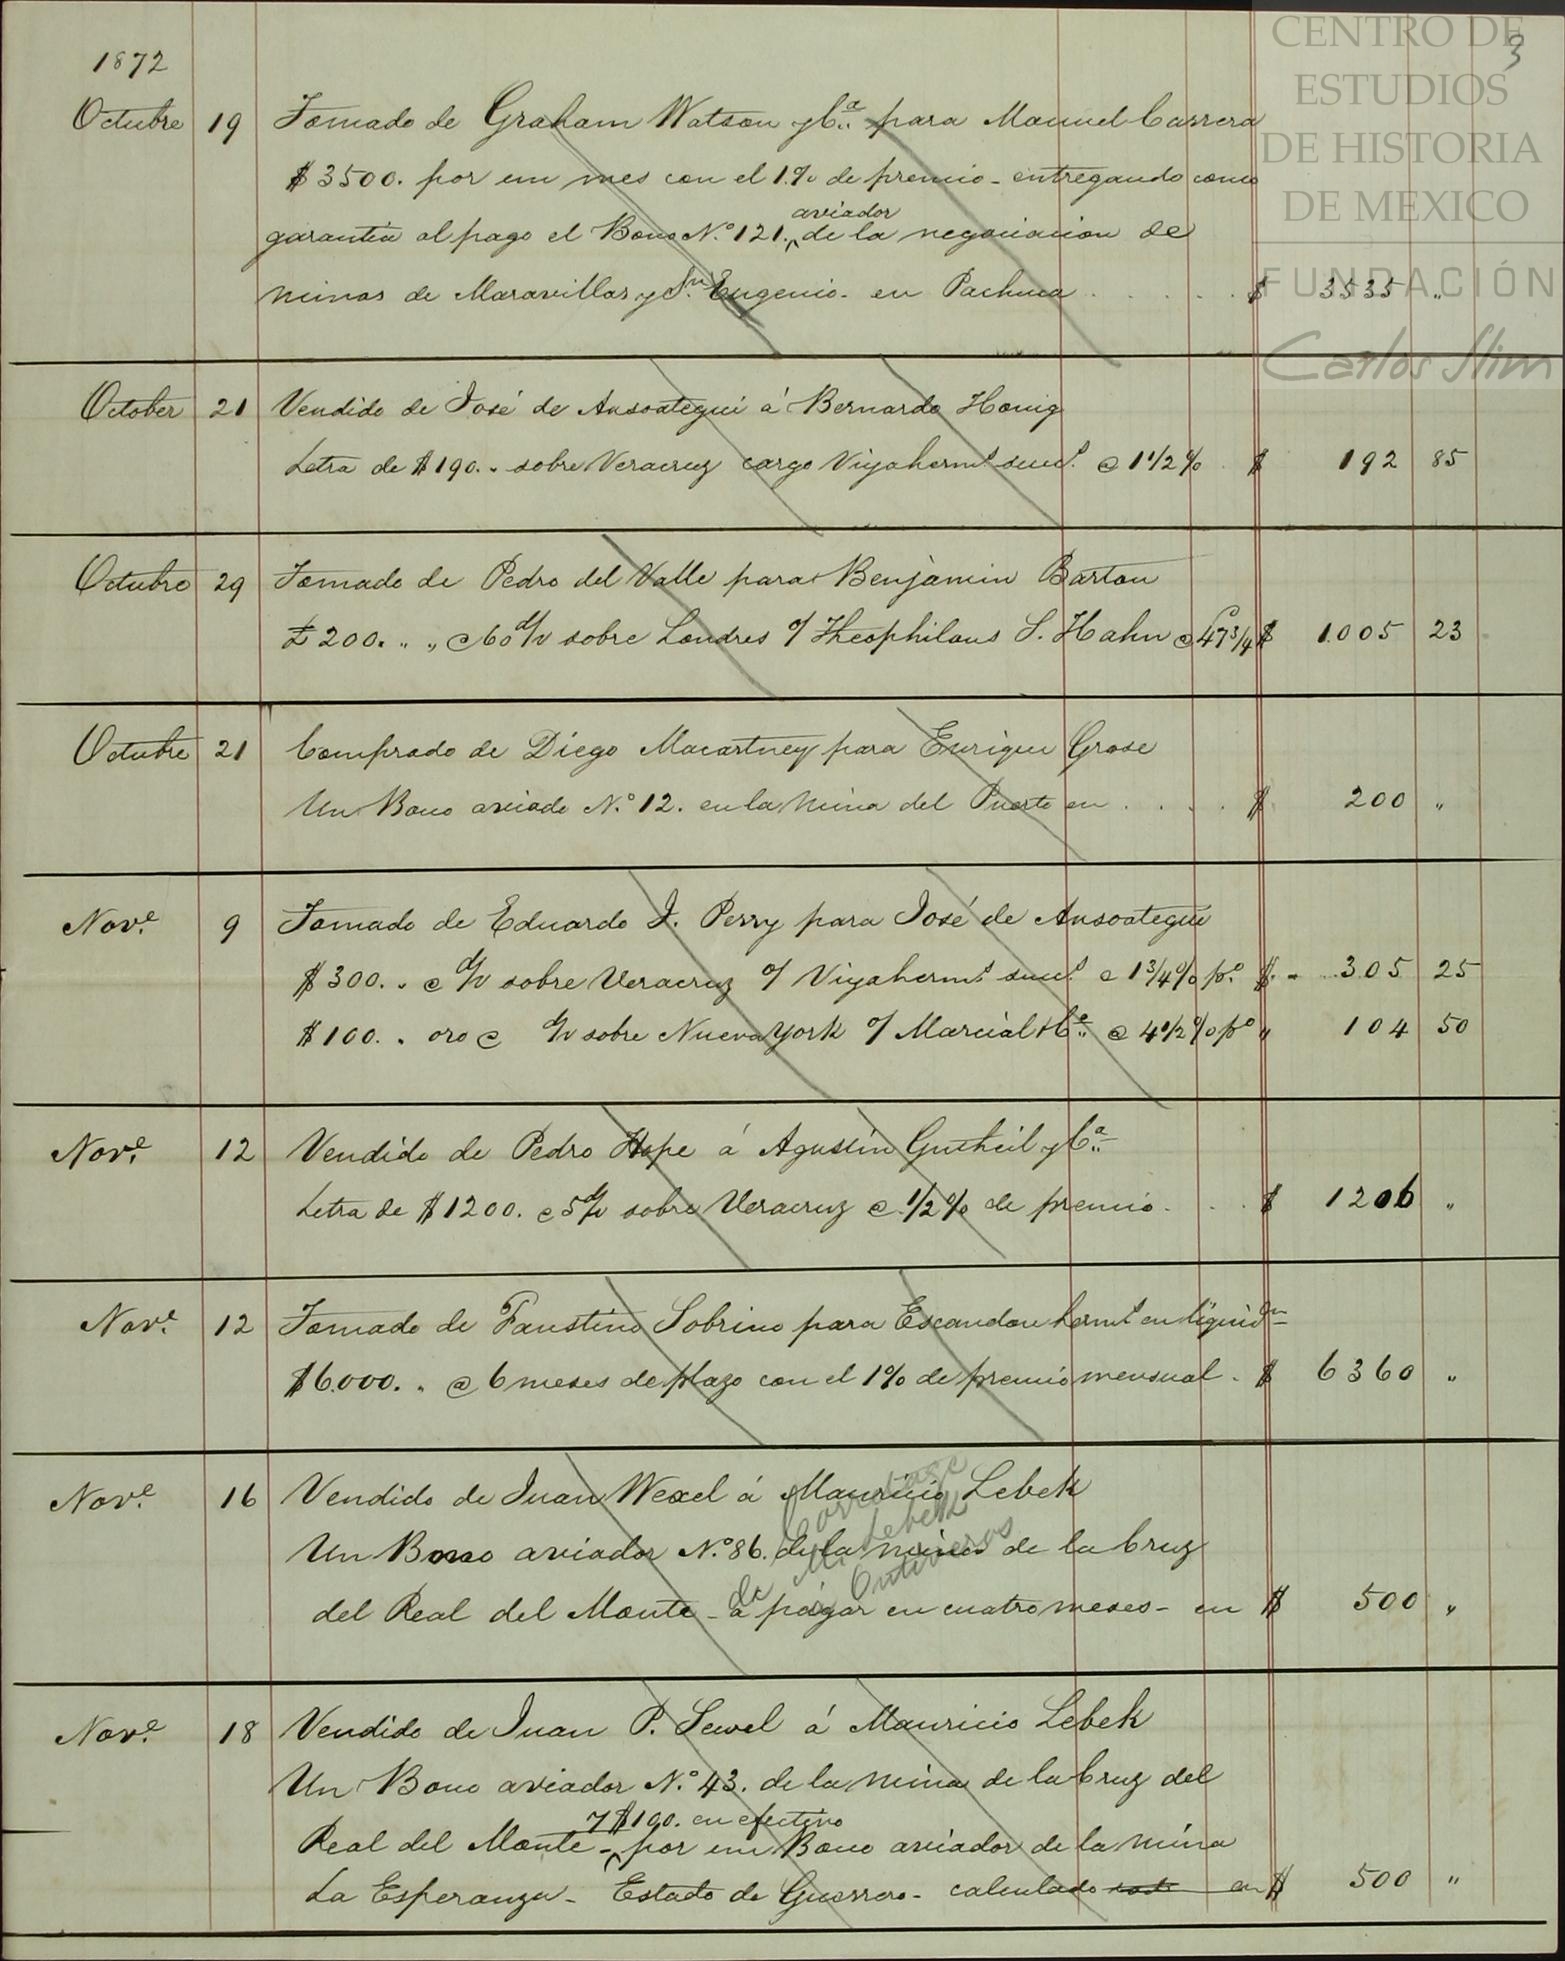 CENTRO DE
ESTUDIOS
DE HISTORIA
DE MEXICO
FUNDACIÓN
Carlos Slim
3
1872
Octubre 19 Tomado de Graham Watson y Cª para Manuel Carrera
$3500. por un mes con el 1.% de premio - entregando como
aviador
garantia al pago el Bono N.º 121. ‸ de la negociacion de
minas de Maravillas y Sn. Eugenio - en Pachuca . . . . . $ 3535 "
October 21 Vendido de José de Ansoategui á Bernardo Hœnig
Letra de $190. " sobre Veracruz cargo Viya herms. sucs. @ 1 1/2 % . $ 192 85
Octubre 29 Tomado de Pedro del Valle para Benjamin Barton
£ 200. " " @ 60 d/v sobre Londres c/ Theophilaus S. Hahn @ 47 3/4 $ 1.005 23
Octubre 21 Comprado de Diego Macartney para Enrique Grose
Un Bono aviado N.º 12. en la Mina del Puerto en . . . . $ 200 "
Nov.e 9 Tomado de Eduardo J. Perry para José de Ansoategui
$300. " @ d/v sobre Veracruz c/ Viya herms. sucs. @ 1 3/4 % pº. $. - 305 25
$100. " oro @ d/v sobre Nueva York c/ Marcial & Cª @ 4 1/2 % pº " 104 50
Nov.e 12 Vendido de Pedro Hope á Agustin Gutheil y Cª
Letra de $1200. @ 5 d/v sobre Veracruz @ 1/2 % de premio . . . $ 1206 "
Nov.e 12 Tomado de Faustino Sobrino para Escandon herms. en liquidn
$6.000. " @ 6 meses de plazo con el 1% de premio mensual . $ 6360 "
Nov.e 16 Vendido de Juan Wexel á Mauricio Lebek
Un Bono aviador N.º 86. de la mina de la Cruz
del Real del Monte - á pagar en cuatro meses - en $ 500 "
Corretage
de M. Lebek
Ontiveros
Nov.e 18 Vendido de Juan P. Sewel á Mauricio Lebek
Un Bono aviador N.º 43. de la Mina de la Cruz del
y $100. en efectivo
Real del Monte - ‸ por un Bono aviador de la mina
La Esperanza - Estado de Guerrero - calculado en $ 500 "